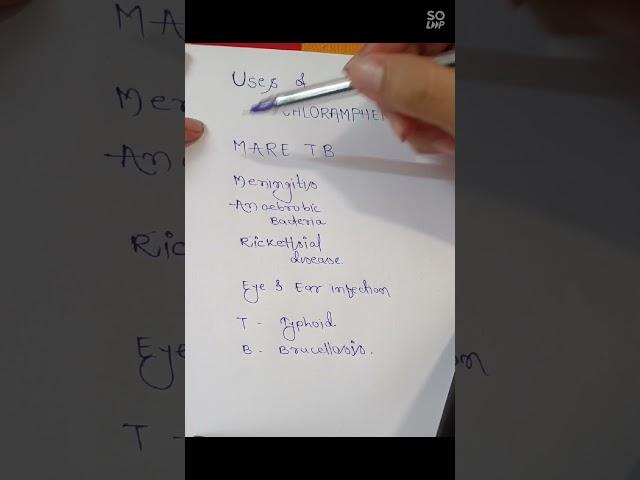 SO
LOOP
Uses of
CHLORAMPHEN
MARE TB
Meningitis
Anaebrobic
Bacteria
Rickettsial
disease.
Eye & Ear infection
T - Typhoid.
B - Brucellosis.